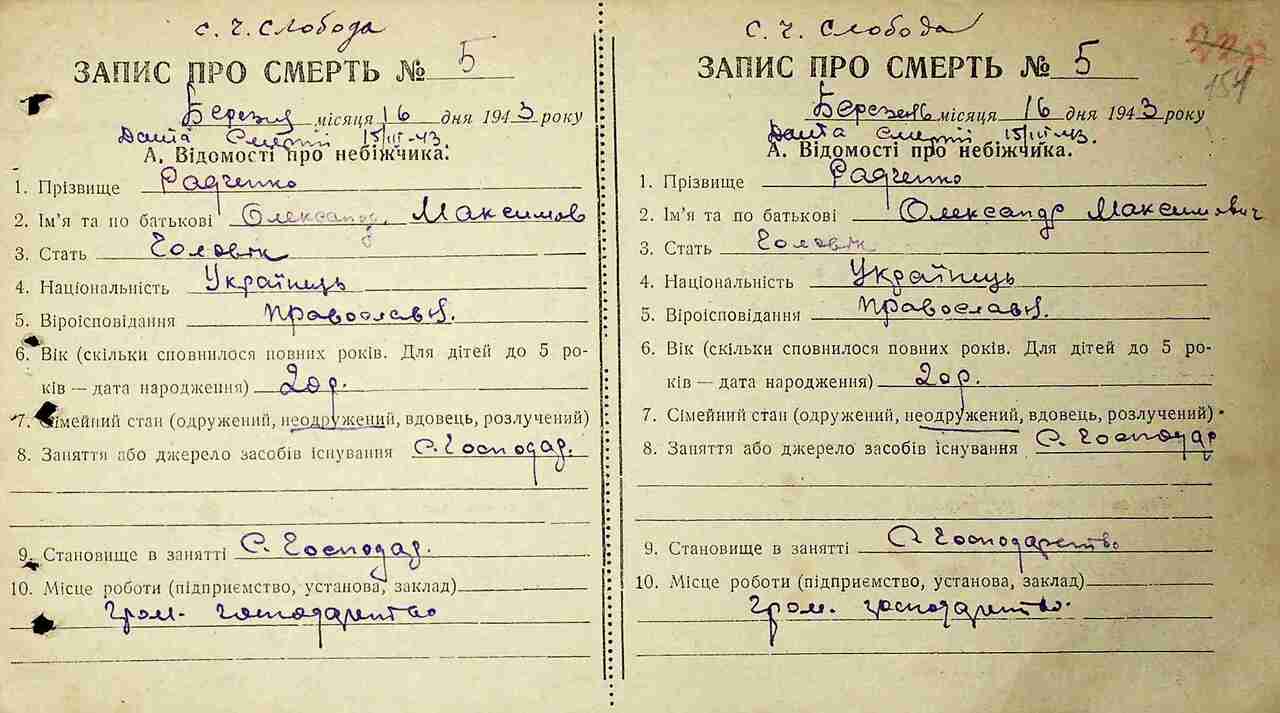 с. Ч. Слобода
ЗАПИС ПРО СМЕРТЬ № 5
Березня місяця 16 дня 1943 року
Дата Смерті 15/III-43
А. Відомості про небіжчика:
1. Прізвище Радченко
2. Ім'я та по батькові Олександ. Максимов
3. Стать Чоловік
4. Національність Українець
5. Віроісповідання Православн.
6. Вік (скільки сповнилося повних років. Для дітей до 5 ро-
ків — дата народження) 20 р.
7. Сімейний стан (одружений, неодружений, вдовець, розлучений)
8. Заняття або джерело засобів існування С. Господар.
9. Становище в занятті С. Господар.
10. Місце роботи (підприємство, установа, заклад)
Гром. господарство
с. Ч. Слобода
154
ЗАПИС ПРО СМЕРТЬ № 5
Березень місяця 16 дня 1943 року
Дата Смерті 15/III-43.
А. Відомості про небіжчика.
1. Прізвище Радченко
2. Ім'я та по батькові Олександр Максимович
3. Стать Чоловік
4. Національність Українець
5. Віроісповідання Православн.
6. Вік (скільки сповнилося повних років. Для дітей до 5 ро-
ків — дата народження) 20 р.
7. Сімейний стан (одружений, неодружений, вдовець, розлучений)
8. Заняття або джерело засобів існування С. Господар
9. Становище в занятті С. Господарство
10. Місце роботи (підприємство, установа, заклад)
Гром. господарство.